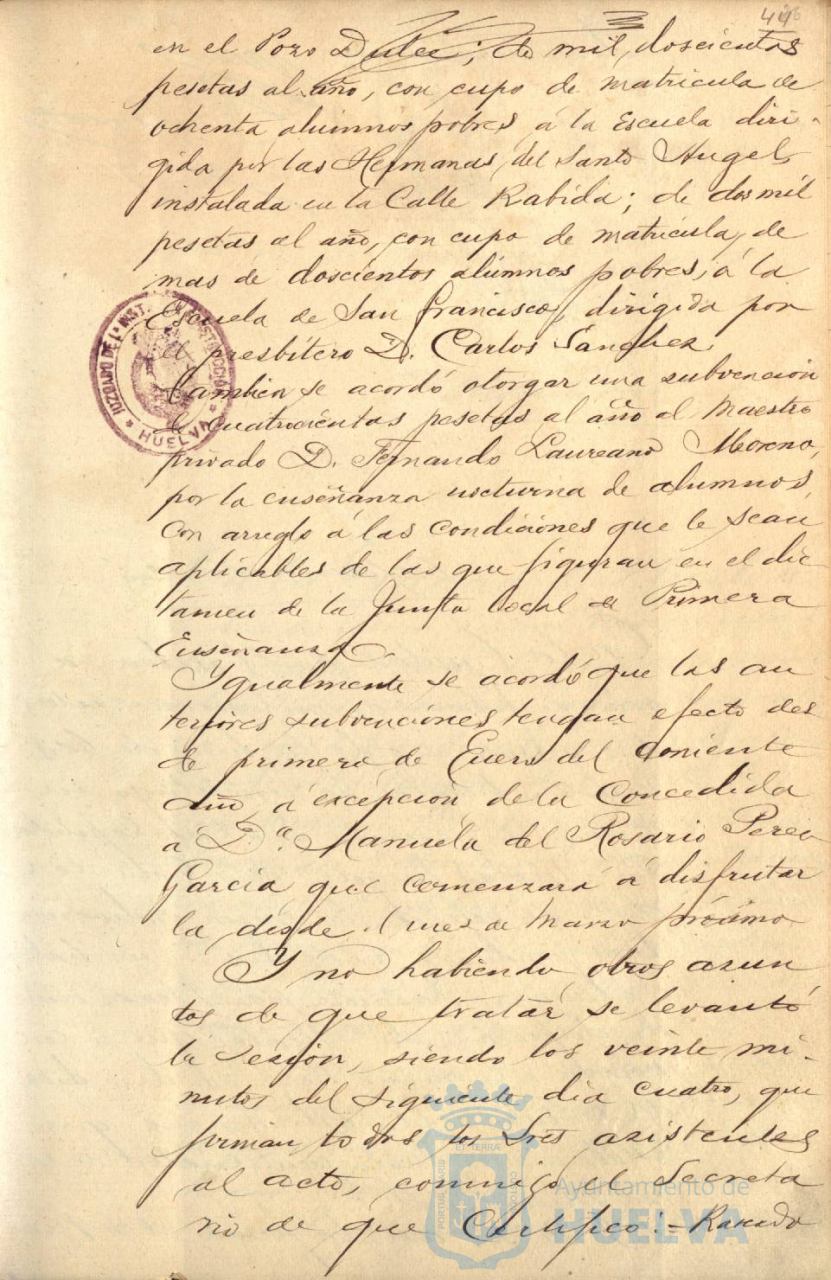 446
en el Pozo Dulce; de mil doscientas
pesetas al año, con cupo de matricula de
ochenta alumnos pobres á la Escuela diri-
gida por las Hermanas del Santo Angel,
instalada en la Calle Rabida; de dos mil
pesetas al año, con cupo de matricula, de
mas de doscientos alumnos pobres, á la
Escuela de San Francisco, dirigida por
el presbítero D. Carlos Sánchez.
Tambien se acordó otorgar una subvención
de cuatrocientas pesetas al año al Maestro
privado D. Fernando Laureano Moreno,
por la enseñanza nocturna de alumnos,
con arreglo á las condiciones que le sean
aplicables de las que figuran en el dic
tamen de la Junta local de Primera
Enseñanza.
Ygualmente se acordó que las an
teriores subvenciones tengan efecto des
de primero de Enero del corriente
año, á excepción de la Concedida
a D.ª Manuela del Rosario Perea
García que comenzará á disfrutar
la desde el mes de Marzo próximo
Y no habiendo otros asun
tos de que tratar se levantó
la sesión, siendo los veinte mi-
nutos del siguiente dia cuatro, que
firman todos los Sres asistentes
al acto, conmigo el Secreta
rio de que Certifico:-
JUZGADO DE 1ª INST. E INSTRUCCIÓN
* HUELVA *
Ayuntamiento de
HUELVA